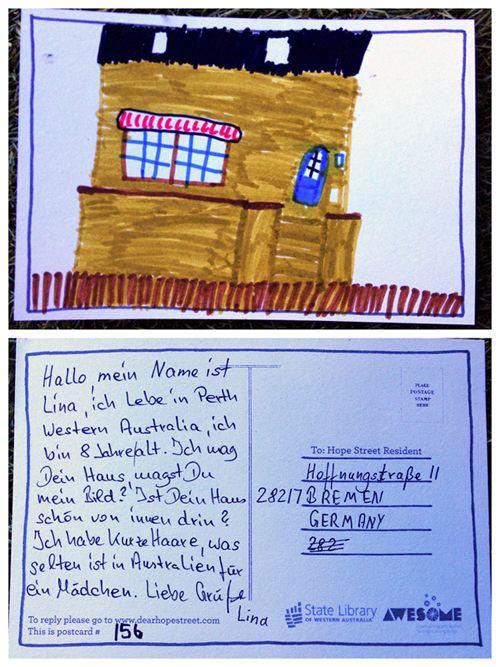 Hallo, mein Name ist
Lina, ich Lebe in Perth
Western Australia, ich
bin 8 Jahre alt. Ich mag
Dein Haus, magst Du
mein Bild? Ist Dein Haus
schön von innen drin?
Ich habe Kurze Haare, was
selten ist in Australien für
ein Mädchen. Liebe Grüße
Lina
To reply please go to www.dearhopestreet.com
This is postcard # 156
PLACE
POSTAGE
STAMP
HERE
To: Hope Street Resident
Hoffnungstraße 11
28217 BREMEN
GERMANY
282
State Library
OF WESTERN AUSTRALIA
AWESOME